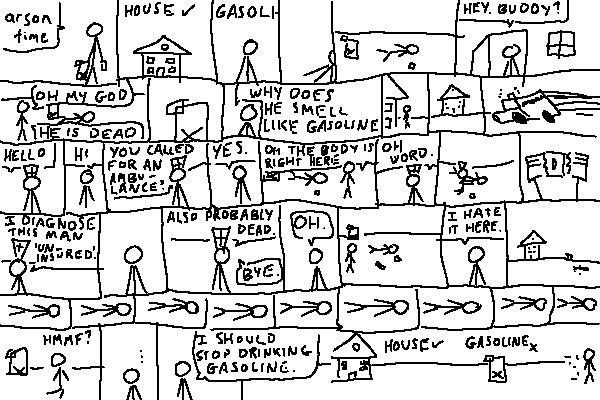 arson
time
HOUSE ✓
GASOLI-
HEY. BUDDY?
OH MY GOD
HE IS DEAD
WHY DOES
HE SMELL
LIKE GASOLINE
HELLO
HI
YOU CALLED
FOR AN
AMBU-
LANCE?
YES.
OH THE BODY IS
RIGHT HERE
OH
WORD.
I DIAGNOSE
THIS MAN
'UN-
INSURED'.
ALSO PROBABLY
DEAD.
BYE.
OH.
I HATE
IT HERE.
HMMF?
I SHOULD
STOP DRINKING
GASOLINE.
HOUSE ✓
GASOLINE x